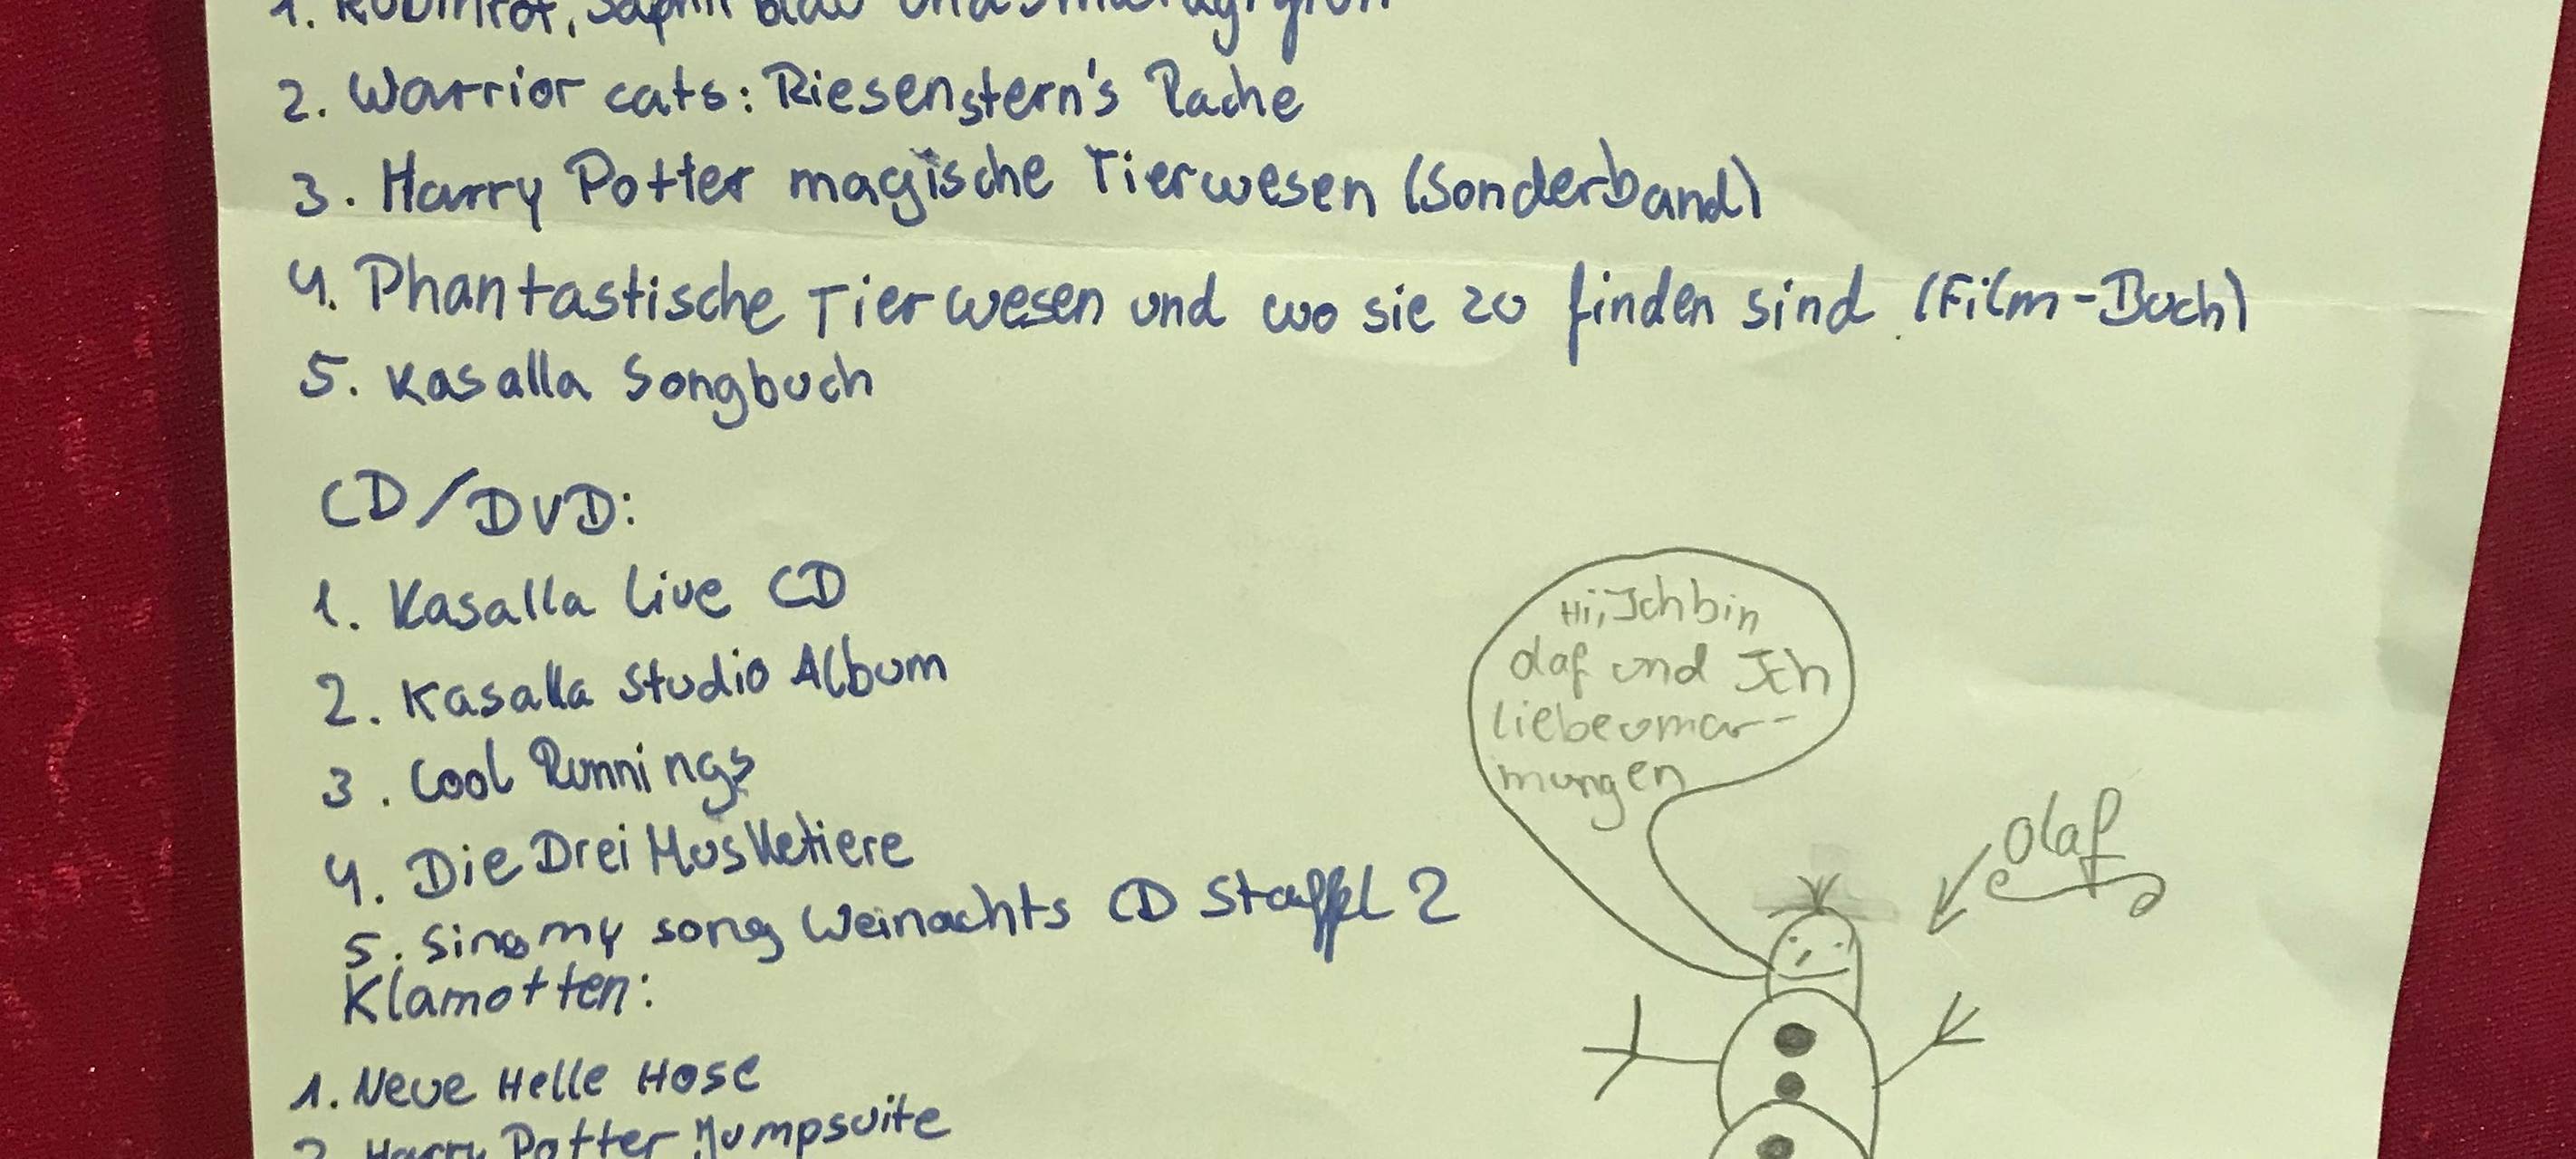 1. Rubinrot, Saphirblau und Smaragdgrün
2. Warrior cats: Riesenstern's Rache
3. Harry Potter magische Tierwesen (Sonderband)
4. Phantastische Tierwesen und wo sie zu finden sind (Film-Buch)
5. Kasalla Songbuch
CD/DVD:
1. Kasalla Live CD
2. Kasalla Studio Album
3. Cool Runnings
4. Die Drei Musketiere
5. Sing my song Weinachts CD Staffel 2
Klamotten:
1. Neue Helle Hose
2. Harry Potter Jumpsuite
Hi, Ich bin
olaf und Ich
liebe umar-
mungen
Olaf